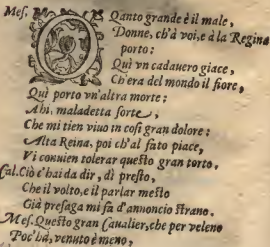 Mes. OQanto grande è il male,
Donne, ch'à voi, e à la Regina
porto:
Quì vn cadauero giace,
Ch'era del mondo il fiore,
Quì porto vn'altra morte;
Ahi, maladetta sorte,
Che mi tien viuo in cosi gran dolore;
Alta Reina, poi ch'al fato piace,
Vi conuien tolerar questo gran torto.
Cal. Ciò c'hai da dir, dì presto,
Che il volto, e il parlar mesto
Già presaga mi fà d'annoncio strano.
Mes. Questo gran Caualier, che per veleno
Poc'hà, venuto è meno,